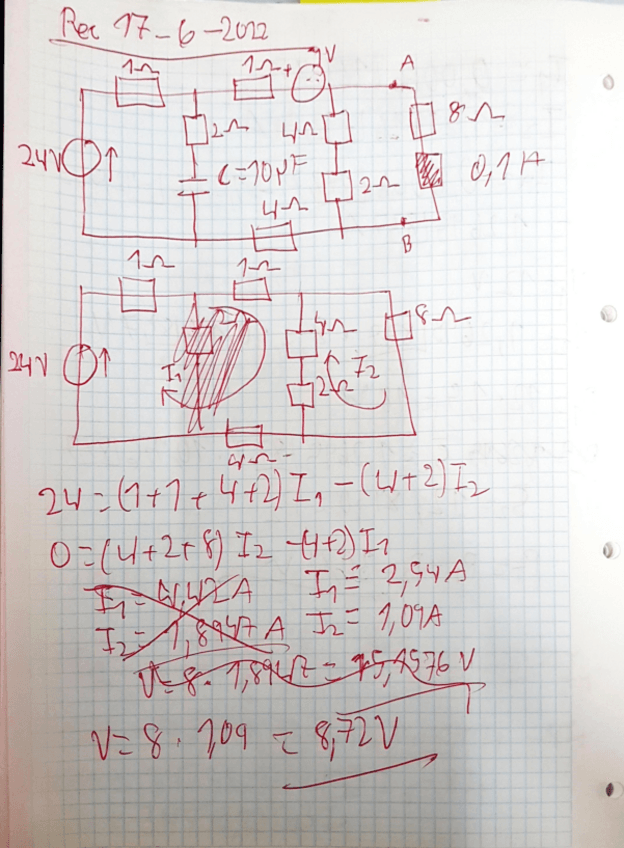 Rec 17-6-2022
1Ω
1Ω
+
V
A
24V
2Ω
4Ω
8Ω
C=10μF
2Ω
0,1A
4Ω
B
1Ω
1Ω
24V
4Ω
8Ω
I1
2Ω
I2
4Ω
24=(1+1+4+2)I1-(4+2)I2
0=(4+2+8)I2-(4+2)I1
I1=4,42A
I1=2,54A
I2=1,8947A
I2=1,09A
V=8.1,8947=15,1576V
V=8.1,09=8,72V